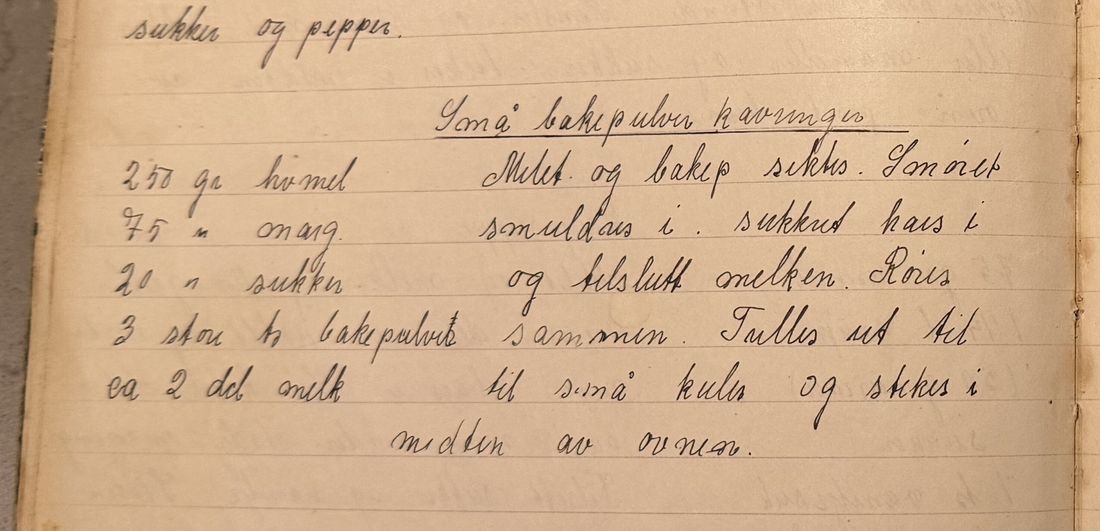 sukker og pepper.
Små bakepulver kavringer
250 gr hvmel
75 " marg.
20 " sukker
3 store ts bakepulver
ca 2 del melk
Melet og bakep siktes. Smøret
smuldres i. sukkret haes i
og tilslutt melken. Røres
sammen. Trilles ut til
til små kuler og stekes i
midten av ovnen.